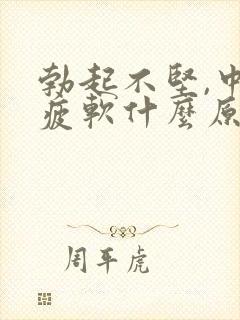 勃起不堅,中
疲軟什麼原
周平虎